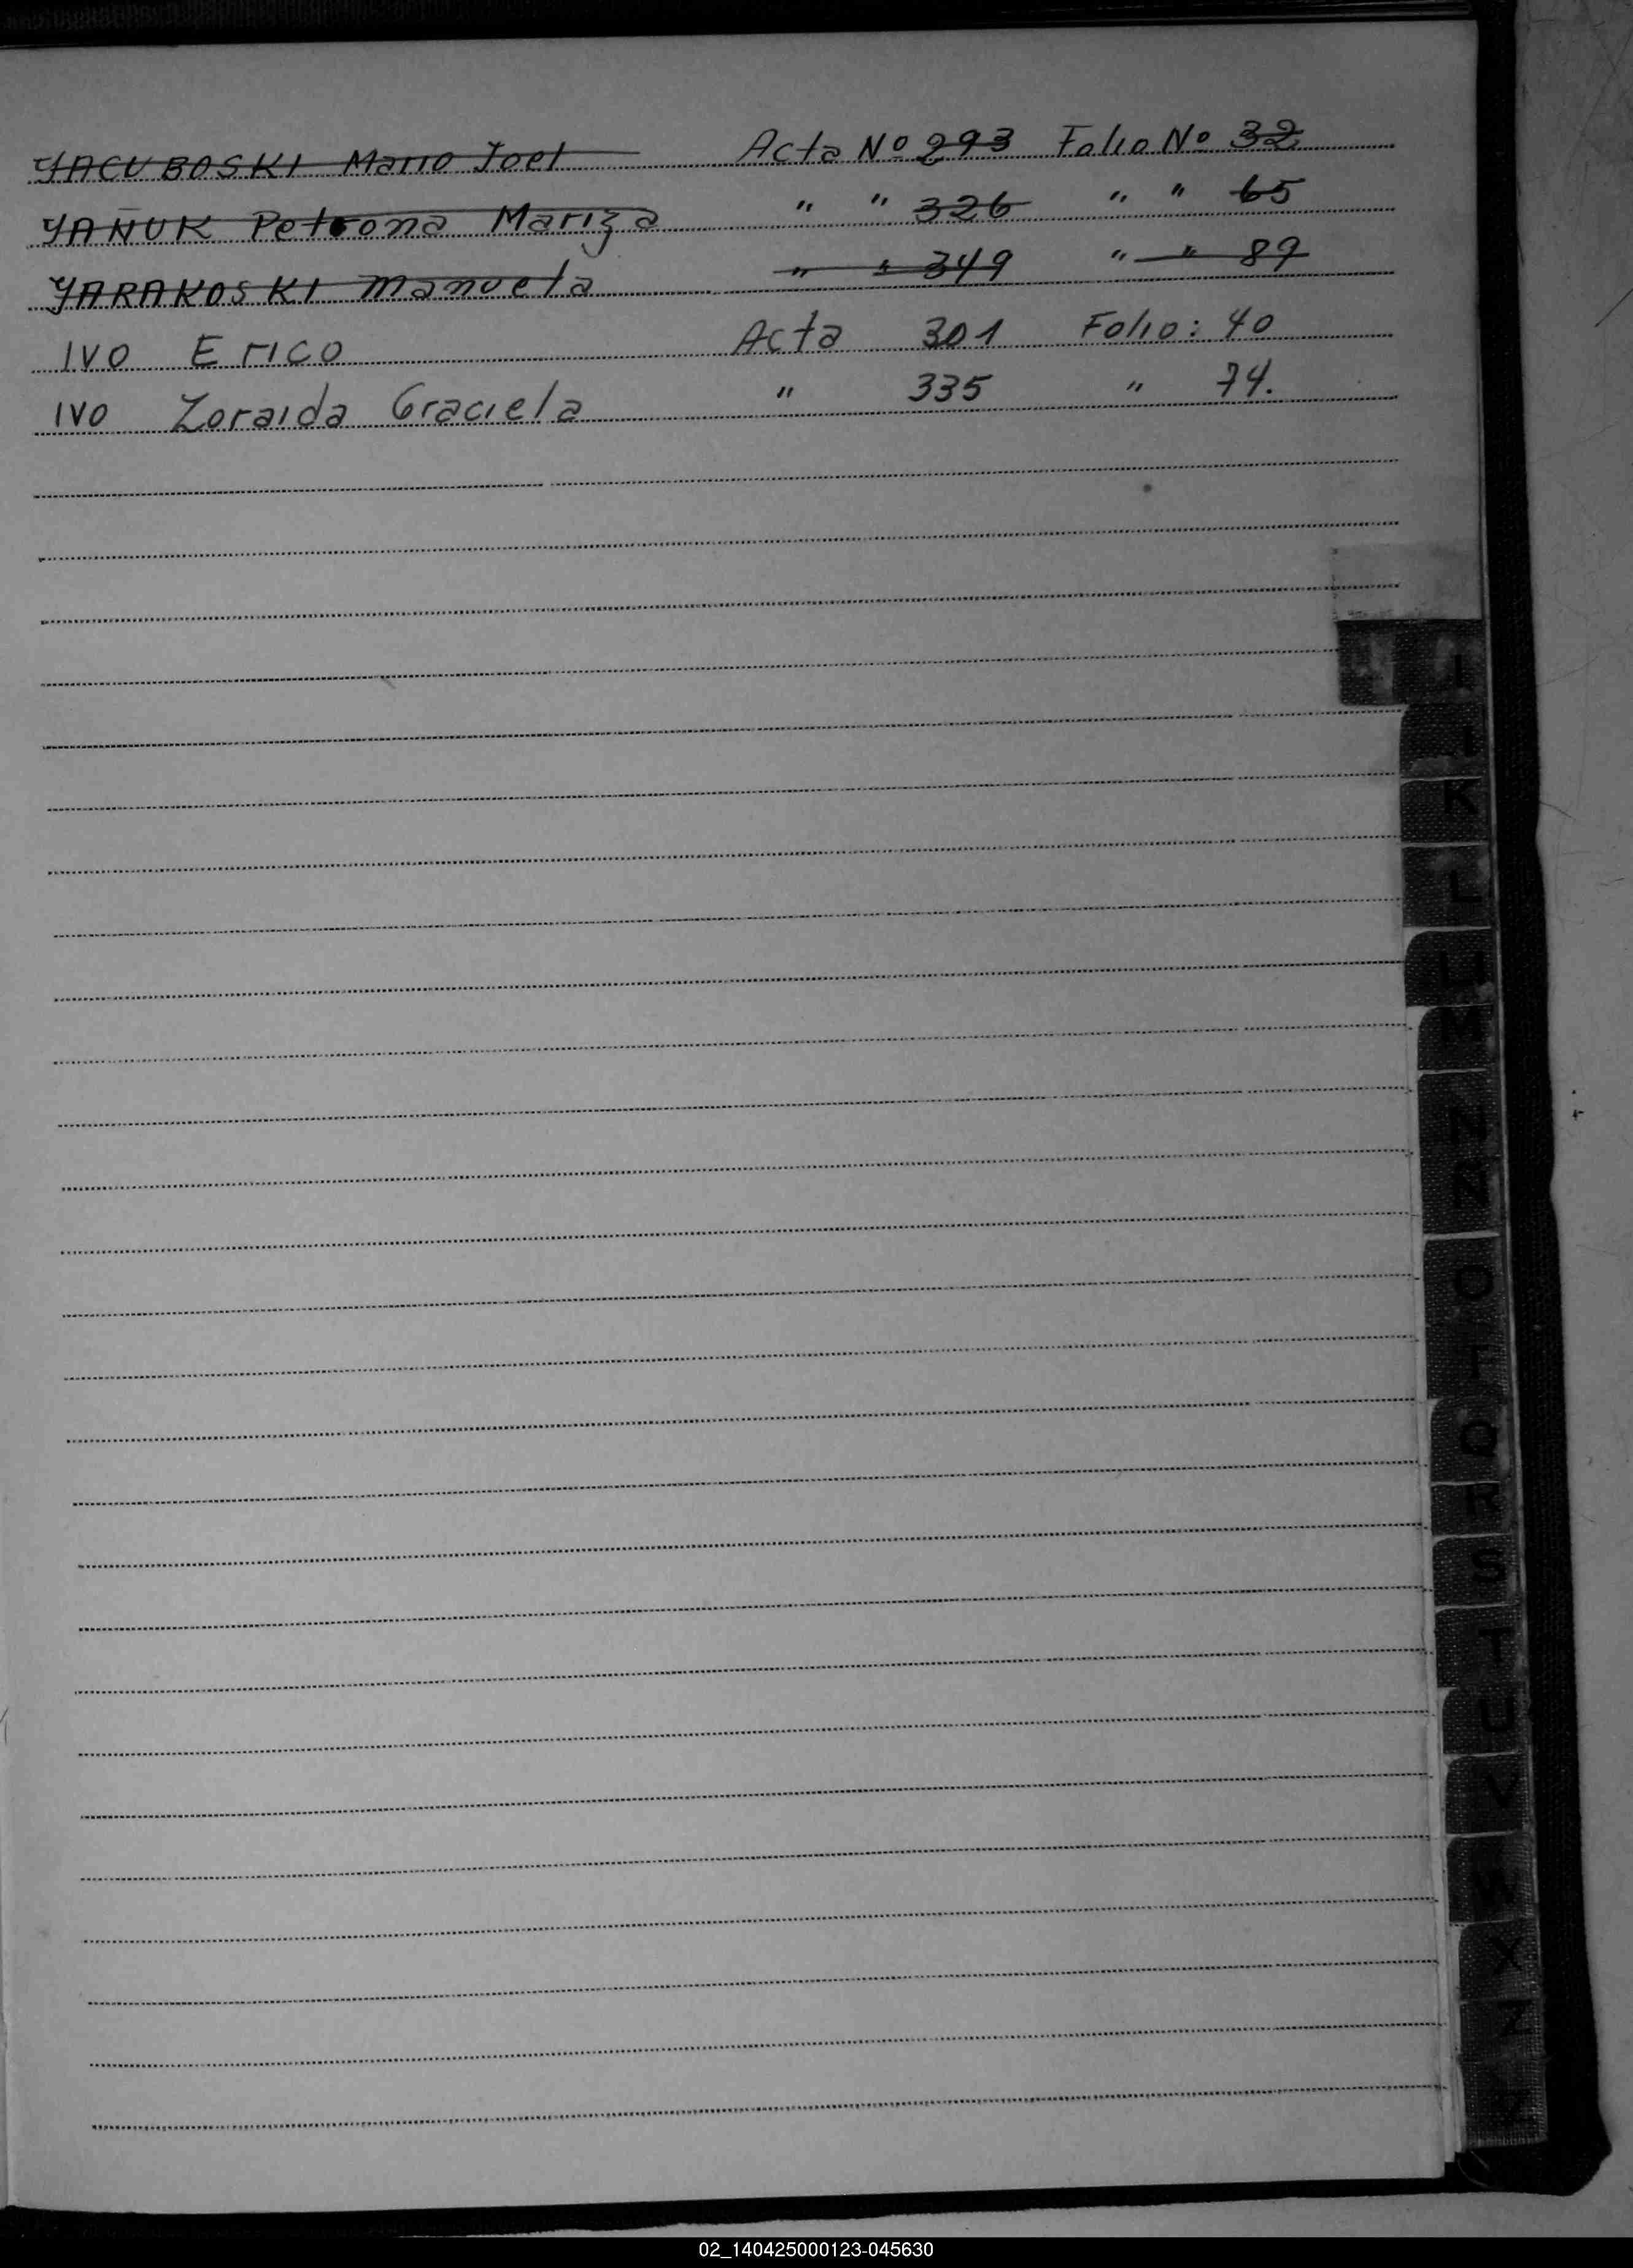 YACUBOSKI Mario Joel Acta Nº 293 Folio Nº 32
YAÑUK Petrona Mariza " " 326 " " 65
YARAKOSKI Manuela " " 349 " " 89
IVO Erico Acta 301 Folio: 40
IVO Zoraida Graciela " 335 " 74.
I
K
L
M
N
Ñ
O
Q
R
S
T
U
V
W
X
Z
02_140425000123-045630